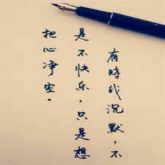 有時候沉默，不
是不快乐，只是想
把心净空。